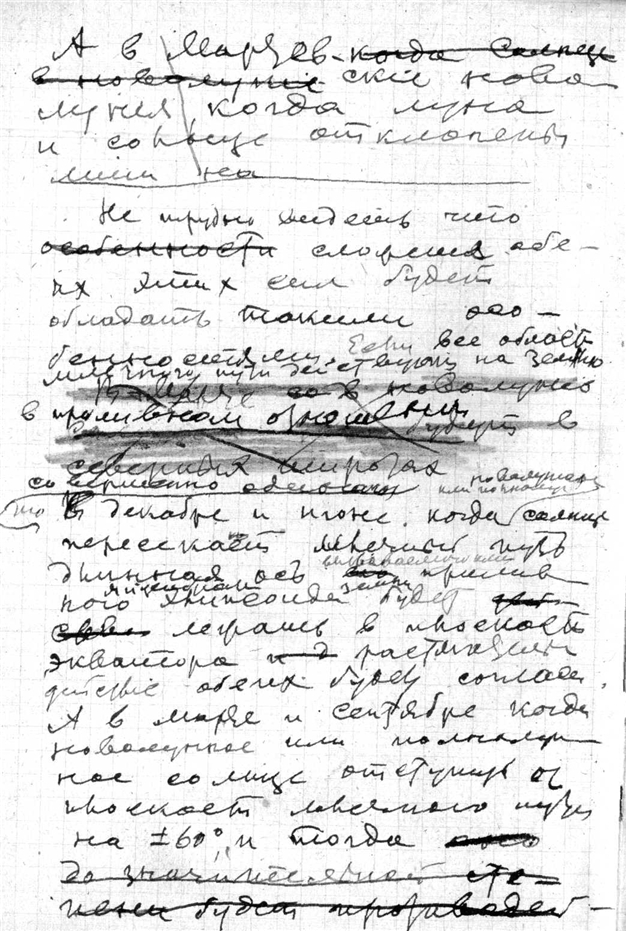 А в Мартов- когда солнце
в новолуние ские ново
луния, когда луна
и солнце отклонены
лишь на
Не трудно видеть что
особенности сложения обе-
их этих сил будет
обладать такими осо-
бенностями. Если все области
млечного пути действуют на Землю
в новолунье
в приливном отношении
будут в
северных широтах
совершенно одинаково или новолунная
то в декабре и июне. когда солнце
пересекает млечный путь
длинная ось прилив
ного эллипсоида будет
лежать в плоскости
экватора и растягив
действие обеих будет соглас.
А в марте и сентябре когда
новолунное или полнолун
ное солнце отступит от
плоскост млечного пути
на ±60°, и тогда
до значительной сте-
пени будет производ-